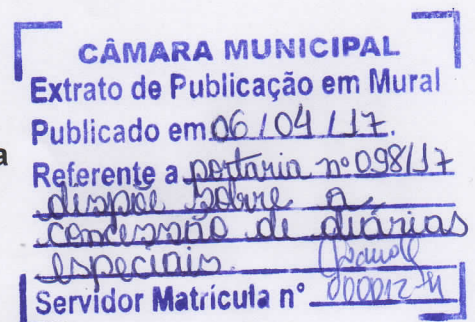 CÂMARA MUNICIPAL
Extrato de Publicação em Mural
Publicado em 06/04/17.
a
Referente a portaria nº 098/17
dispõe sobre a
concessão de diárias
especiais.
Servidor Matrícula nº 000012-4